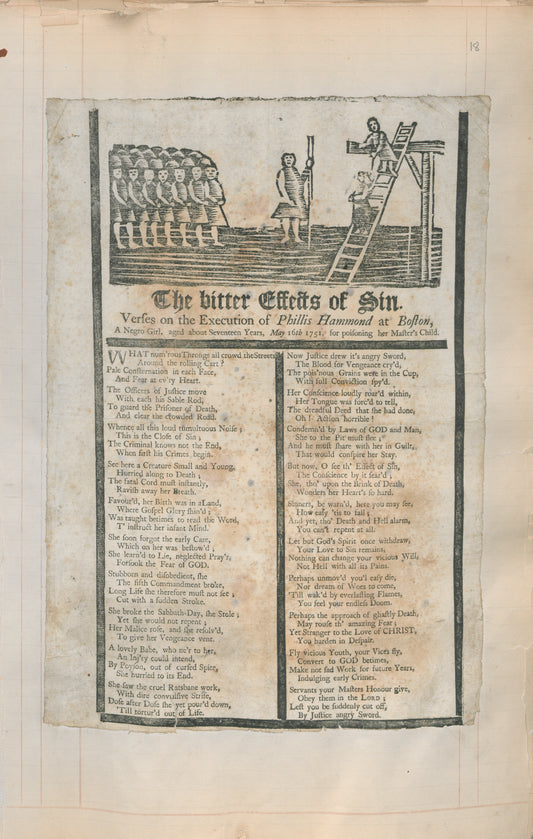 18
The bitter Effects of Sin.
Verses on the Execution of Phillis Hammond at Boston,
A Negro Girl, aged about Seventeen Years, May 16th 1751, for poisoning her Master's Child.
WHAT num'rous Throngs all crowd the Streets
Around the rolling Cart?
Pale Consternation in each Face,
And Fear at ev'ry Heart.
The Officers of Justice move
With each his Sable Rod,
To guard the Prisoner of Death,
And clear the crowded Road.
Whence all this loud tumultuous Noise;
This is the Close of Sin;
The Criminal knows not the End,
When first his Crimes begin.
See here a Creature Small and Young,
Hurried along to Death;
The fatal Cord must instantly,
Ravish away her Breath.
Favour'd, her Birth was in a Land,
Where Gospel Glory shin'd;
Was taught betimes to read the Word,
T' instruct her infant Mind.
She soon forgot the early Care,
Which on her was bestow'd;
She learn'd to Lie, neglected Pray'r,
Forsook the Fear of GOD.
Stubborn and disobedient, she
The fifth Commandment broke,
Long Life she therefore must not see;
Cut with a sudden Stroke.
She broke the Sabbath-Day, she Stole;
Yet she would not repent;
Her Malice rose, and she resolv'd,
To give her Vengeance vent.
A lovely Babe, who ne'r to her,
An Inj'ry could intend,
By Poyson, out of cursed Spite,
She hurried to its End.
She saw the cruel Ratsbane work,
With dire convulsive Strife,
Dose after Dose she yet pour'd down,
'Till tortur'd out of Life.
Now Justice drew it's angry Sword,
The Blood for Vengeance cry'd,
The pois'nous Grains were in the Cup,
With full Conviction spy'd.
Her Conscience loudly roar'd within,
Her Tongue was forc'd to tell,
The dreadful Deed that she had done,
Oh! Action horrible!
Condemn'd by Laws of GOD and Man,
She to the Pit must flee;
And he must share with her in Guilt,
That would conspire her Stay.
But now, O see th' Effect of Sin,
The Conscience by it sear'd;
She, tho' upon the Brink of Death,
Wonders her Heart's so hard.
Sinners, be warn'd, here you may see,
How easy 'tis to fall;
And yet, tho' Death and Hell alarm,
You can't repent at all.
Let but God's Spirit once withdraw,
Your Love to Sin remains,
Nothing can change your vicious Will,
Not Hell with all its Pains.
Perhaps unmov'd you'l easy die,
Nor dream of Woes to come,
'Till wak'd by everlasting Flames,
You feel your endless Doom.
Perhaps the approach of ghastly Death,
May rouse th' amazing Fear;
Yet Stranger to the Love of CHRIST,
You harden in Despair.
Fly vicious Youth, your Vices fly,
Convert to GOD betimes,
Make not sad Work for future Years,
Indulging early Crimes.
Servants your Masters Honour give,
Obey them in the LORD;
Lest you be suddenly cut off,
By Justice angry Sword.